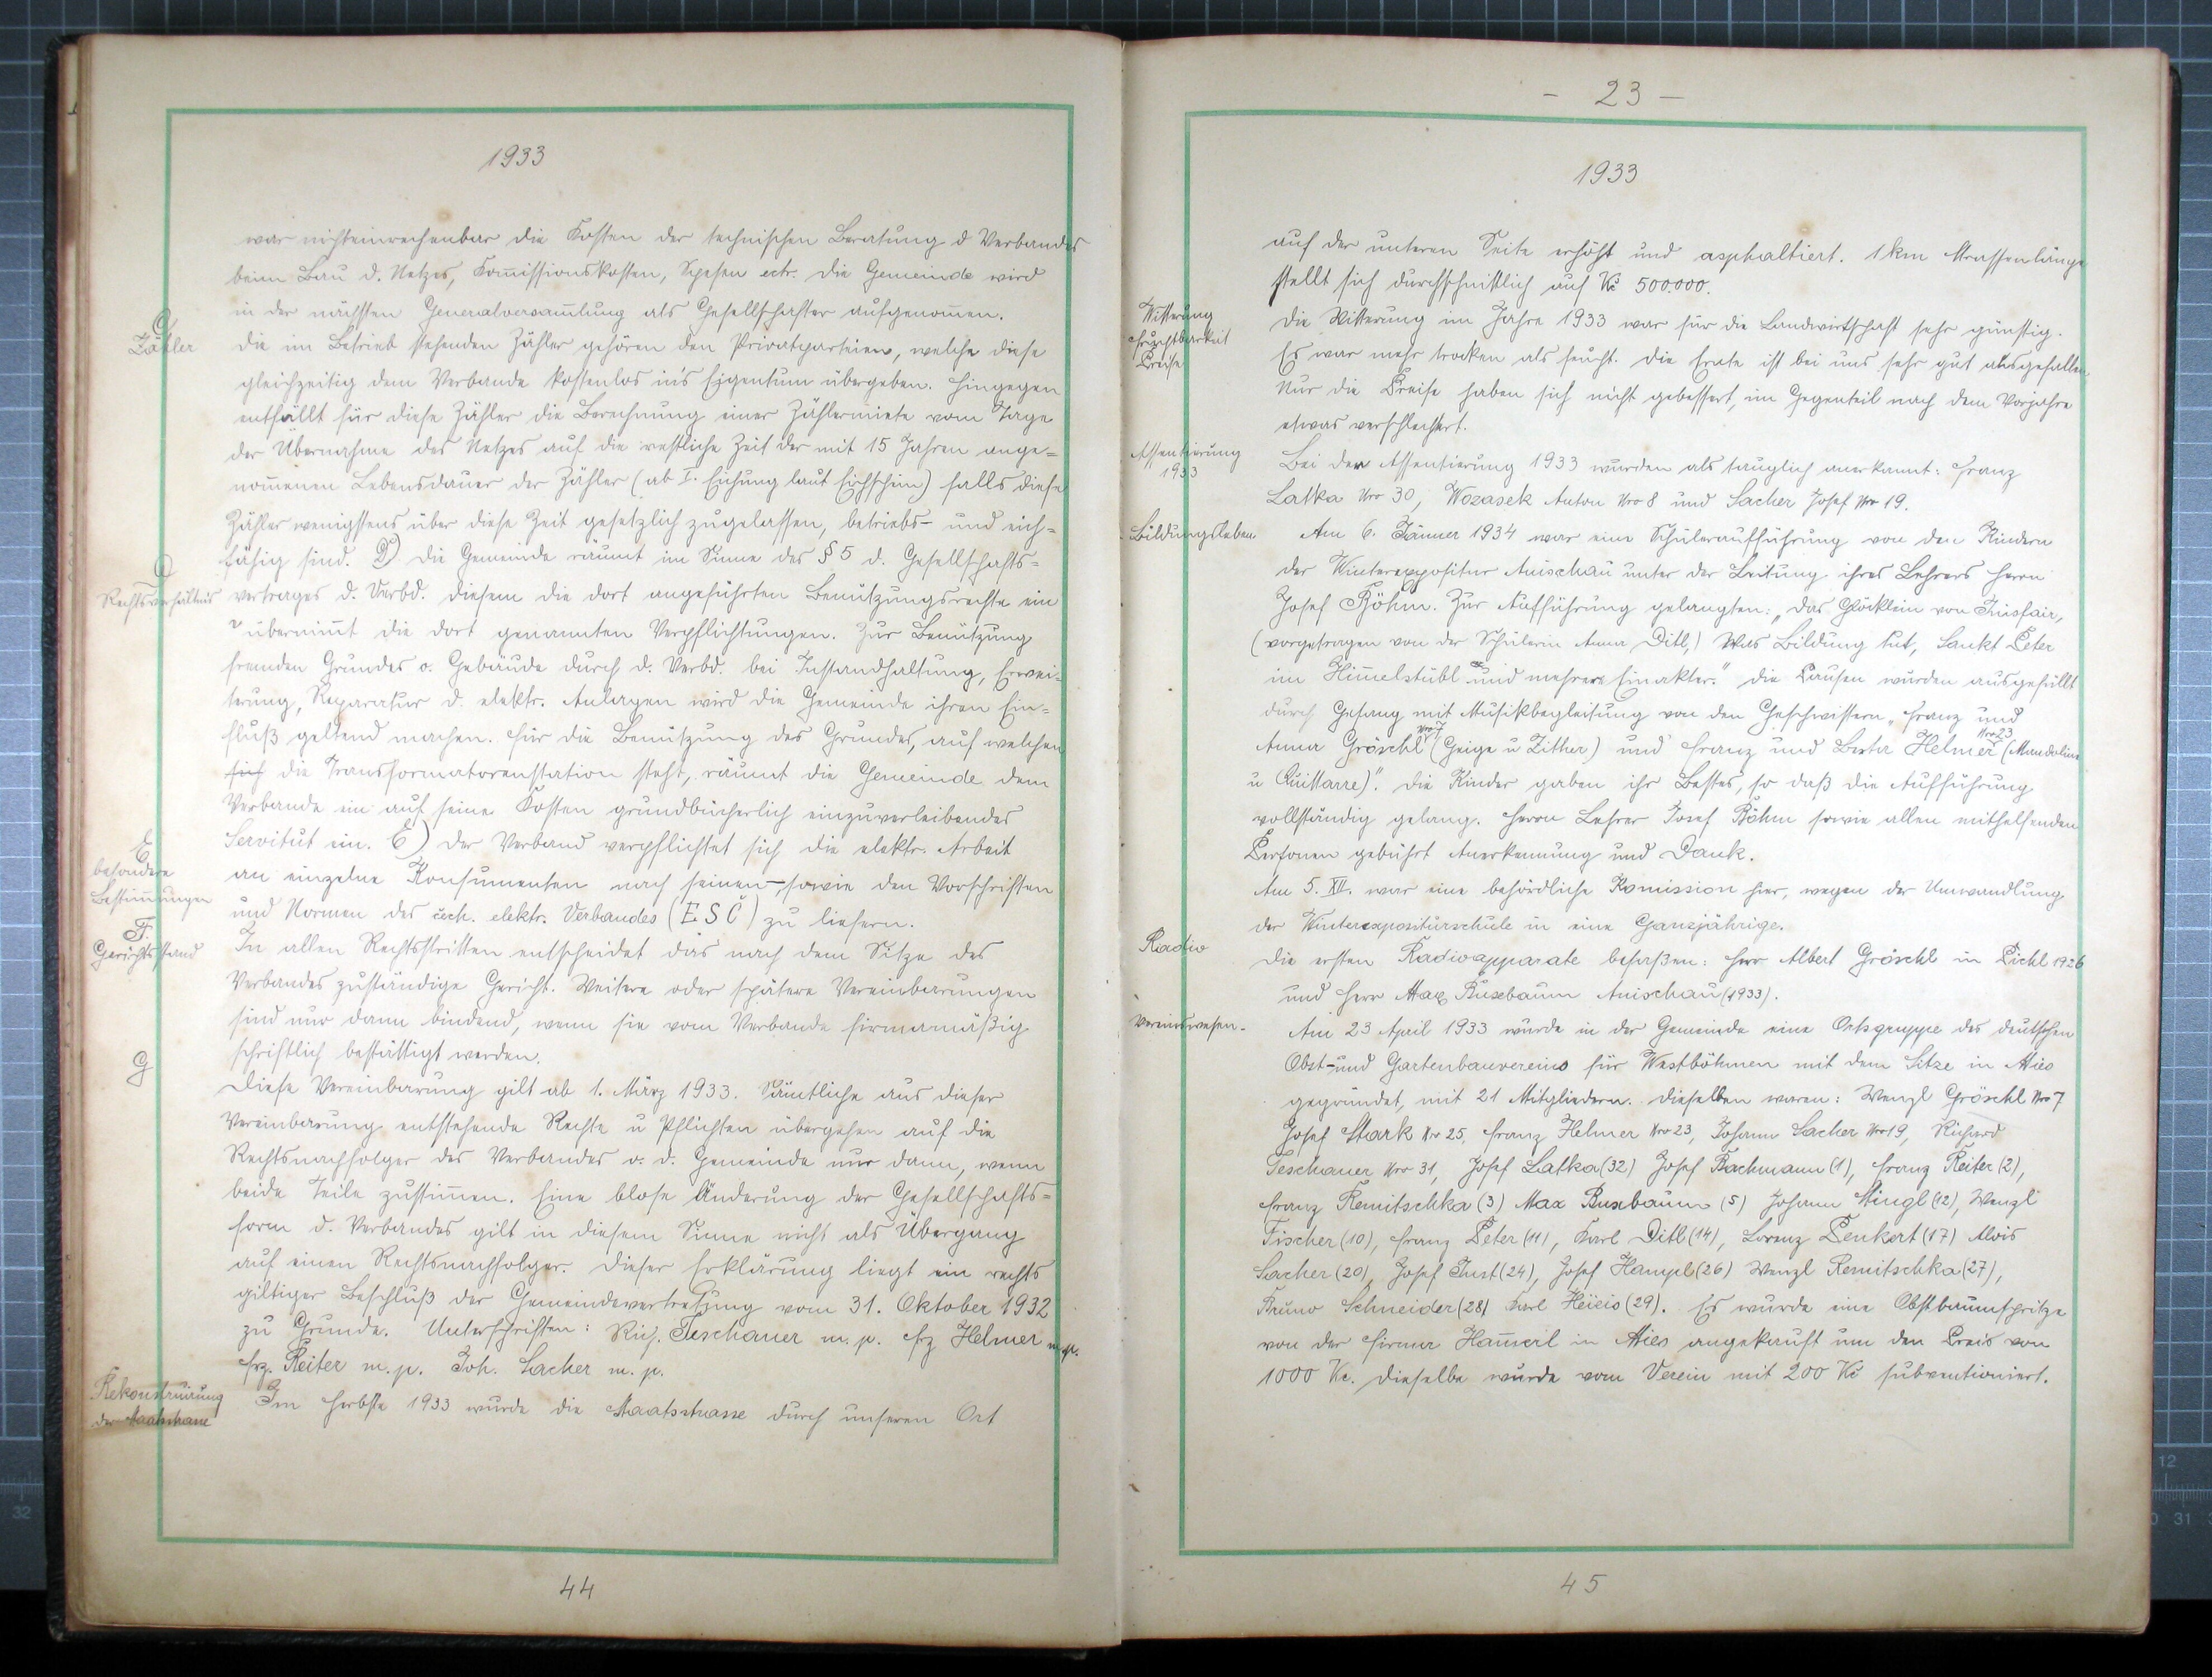 1933
war nichteinrechenbar die Kosten der technischen Beratung d Verbandes
beim Bau d. Netzes, Kom̄issionskosten, Spesen ectr. Die Gemeinde wird
in der nächsten Generalversam̄lung als Gesellschafter aufgenom̄en.
C
Zähler
Die im Betrieb stehenden Zähler gehören den Privatparteien, welche diese
gleichzeitig dem Verbande kostenlos in's Eigentum übergeben. Hingegen
entfällt für diese Zähler die Berechnung einer Zählermiete vom Tage
der Übernahme des Netzes auf die restliche Zeit der mit 15 Jahren ange=
nom̄enen Lebensdauer der Zähler (ab I. Eichung laut Eichschein) falls diese
Zähler wenigstens über diese Zeit gesetzlich zugelassen, betriebs- und eich=
fähig sind. D) Die Gemeinde räumt im Sinne des § 5 d. Gesellschafts=
D
Rechtsverhältnis
vertrages d. Verbd. diesem die dort angeführten Benützungsrechte ein
u übernim̄t die dort genannten Verpflichtungen. Zur Benützung
fremden Grundes o. Gebäude durch d. Verbd. bei Instandhaltung, Erwei=
terung, Reparatur d. elektr. Anlagen wird die Gemeinde ihren Ein=
fluß geltend machen. Für die Benützung des Grundes, auf welchen
sich die Transformatorenstation steht, räumt die Gemeinde dem
Verbande ein auf seine Kosten grundbücherlich einzuverleibendes
Servitut ein. E) Der Verband verpflichtet sich die elektr. Arbeit
E
besondere
Bestim̄ungen
an einzelne Konsumenten nach seinen-, sowie den Vorschriften
und Normen des čech. elektr. Verbandes (ESČ) zu liefern.
F.
Gerichtsstand
In allen Rechtsstritten entscheidet das nach dem Sitze des
Verbandes zuständige Gericht. Weitere oder spätere Vereinbarungen
sind nur dann bindend, wenn sie vom Verbande firmamäßig
schriftlich bestättigt werden.
G
Diese Vereinbarung gilt ab 1. März 1933. Sämtliche aus dieser
Vereinbarung entstehende Rechte u Pflichten übergehen auf die
Rechtsnachfolger des Verbandes o. d. Gemeinde nur dann, wenn
beide Teile zustim̄en. Eine blose Änderung der Gesellschafts=
form d. Verbandes gilt in diesem Sinne nicht als Übergang
auf einen Rechtsnachfolger. Dieser Erklärung liegt ein rechts
giltiger Beschluß der Gemeindevertretung vom 31. Oktober 1932
zu Grunde. Unterschriften: Rich. Teschauer m. p. Frz Helmer m.p.
Frz. Reiter m. p. Joh. Sacher m. p.
Rekonstruirung
der Staatsstrasse
Im Herbste 1933 wurde die Staatsstrasse durch unseren Ort
44
- 23 -
1933
auf der unteren Seite erhöht und asphaltiert. 1 km Strassenlänge
stellt sich durchschnittlich auf Kč 500.000.
Witterung
Fruchtbarkeit
Preise
Die Witterung im Jahre 1933 war für die Landwirtschaft sehr günstig.
Es war mehr trocken als feucht. Die Ernte ist bei uns sehr gut ausgefallen
Nur die Preise haben sich nicht gebessert, im Gegenteil nach dem Vorjahre
etwas verschlechtert.
Assentierung
1933
Bei der Assentierung 1933 wurden als tauglich anerkannt: Franz
Latka Nro 30, Wozasek Anton Nro 8 und Sacher Josef Nro 19.
Bildungsleben
Am 6. Jänner 1934 war eine Schüleraufführung von den Kindern
der Winterexpositur Anischau unter der Leitung ihres Lehrers Herrn
Josef Böhm. Zur Aufführung gelangten: „Das Glöcklein von Inisfair,
(vorgetragen von der Schülerin Anna Ditl,) Was Bildung tut, Sankt Peter
im Him̄elstübl und mehrere Einakter." Die Pausen wurden ausgefüllt
durch Gesang mit Musikbegleitung von den Geschwistern „Franz und
Anna Gröschl Nro 7 (Geige u Zither) und Franz und Berta Helmer Nro 23 (Mandoline
u Quittarre)". Die Kinder gaben ihr Bestes, so daß die Aufführung
vollständig gelang. Herrn Lehrer Josef Böhm sowie allen mithelfenden
Personen gebührt Anerkennung und Dank.
Am 5. XII. war eine behördliche Komission hier, wegen der Umwandlung
der Winterexpositurschule in eine Ganzjährige.
Radio
Die ersten Radioapparate besaßen: Herr Albert Gröschl in Pichl 1926
und Herr Max Buxbaum Anischau (1933).
Vereinswesen.
Am 23 April 1933 wurde in der Gemeinde eine Ortsgruppe des deutschen
Obst- und Gartenbauvereins für Westböhmen mit dem Sitze in Mies
gegründet, mit 21 Mitgliedern. Dieselben waren: Wenzl Gröschl Nro 7
Josef Stark Nr 25, Franz Helmer Nro 23, Johann Sacher Nro 19, Richard
Teschauer Nro 31, Josef Latka (32) Josef Bachmann (1), Franz Reiter (2),
Franz Remitschka (3) Max Buxbaum (5) Johann Stingl (12), Wenzl
Fischer (10), Franz Peter (11), Karl Ditl (14), Lorenz Penkert (17) Alois
Sacher (20), Josef Just (24), Josef Hampl (26) Wenzl Remitschka (27),
Bruno Schneider (28) Karl (29). Es wurde eine Obstbaumspritze
von der Firma Ham̄erl in Mies angekauft um den Preis von
1000 Kč. Dieselbe wurde vom Verein mit 200 Kč subventioniert.
45